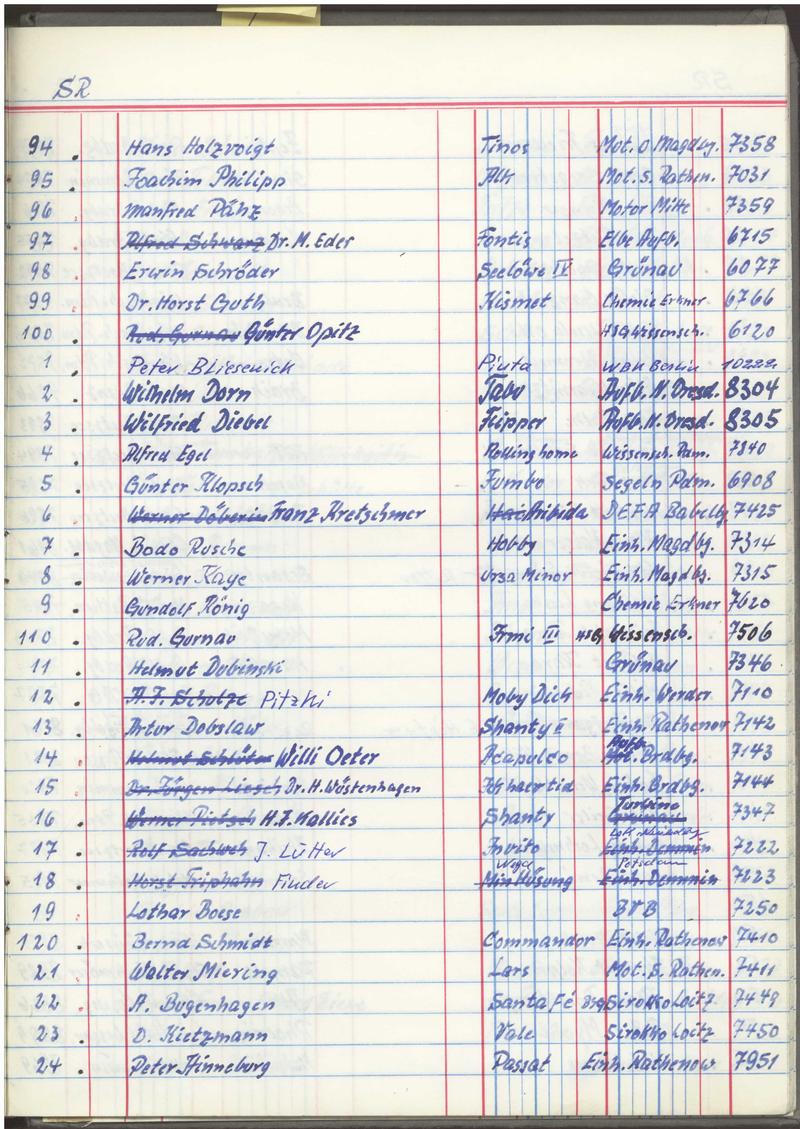 SR
94 . Hans Holzvoigt Tinos Mot. O Magdbg. 7358
95 . Joachim Philipp Alk Mot. S. Rathen. 7031
96 Manfred Pähz Motor Mitte 7359
97 . Alfred Schwarz Dr. M. Eder Fontis Elbe Aufb. 6715
98 . Erwin Schröder Seelöwe IV Grünau 6077
99 . Dr. Horst Guth Kismet Chemie Erkner. 6766
100 . Rud. Gurnau Günter Opitz HSG Wissensch. 6120
1 . Peter Bliesenick Piuta WBK Berlin
2 . Wilhelm Dorn Tabu Aufb. N. Dresd. 8304
3 . Wilfried Diebel Flipper Aufb. N. Dresd. 8305
4 . Alfred Egel Rollinghome Wissensch. Pdm. 7340
5 . Günter Klopsch Jumbo Segeln Pdm. 6908
6 . Werner Döberin Franz Kretschmer Hai Bibida DEFA Babelbg 7425
7 . Bodo Rusche Hobby Einh. Magdbg. 7314
8 . Werner Kaye Ursa Minor Einh. Magdb. 7315
9 . Gundolf König Chemie Erkner 7620
110 . Rud. Gurnau Irmi III HSG Wissensch. 7506
11 . Helmut Dubinski Grünau 7346
12 . H.J. Schulze Pitzki Moby Dick Einh. Werder 7110
13 . Artur Dobslaw Shanty II Einh. Rathenow 7142
Aufb.
14 . Helmut Schlüter Willi Oeter Acapulco Brdbg. 7143
15 . Dr. Jürgen Liesch Dr. H. Wüstenhagen Einh. Brdbg. 7144
Turbine
16 . Werner Pietsch H.J. Kallies Shanty Grünau 7347
17 . Rolf Sachweh J. Lütter Invito Einh. Demmin 7222
Wega Potsdam
18 . Horst Triphahn Finder Min Hüsung Einh. Demmin 7223
19 Lothar Boese BVB 7250
120 . Bernd Schmidt Commandor Einh. Rathenow 7410
21 . Walter Miering Lars Mot. S. Rathen. 7411
22 . A. Bugenhagen Santa Fé BSG Sirokko Loitz 7449
23 . D. Kietzmann Vale Sirokko Loitz 7450
24 . Peter Hinneburg Passat Einh. Rathenow 7951